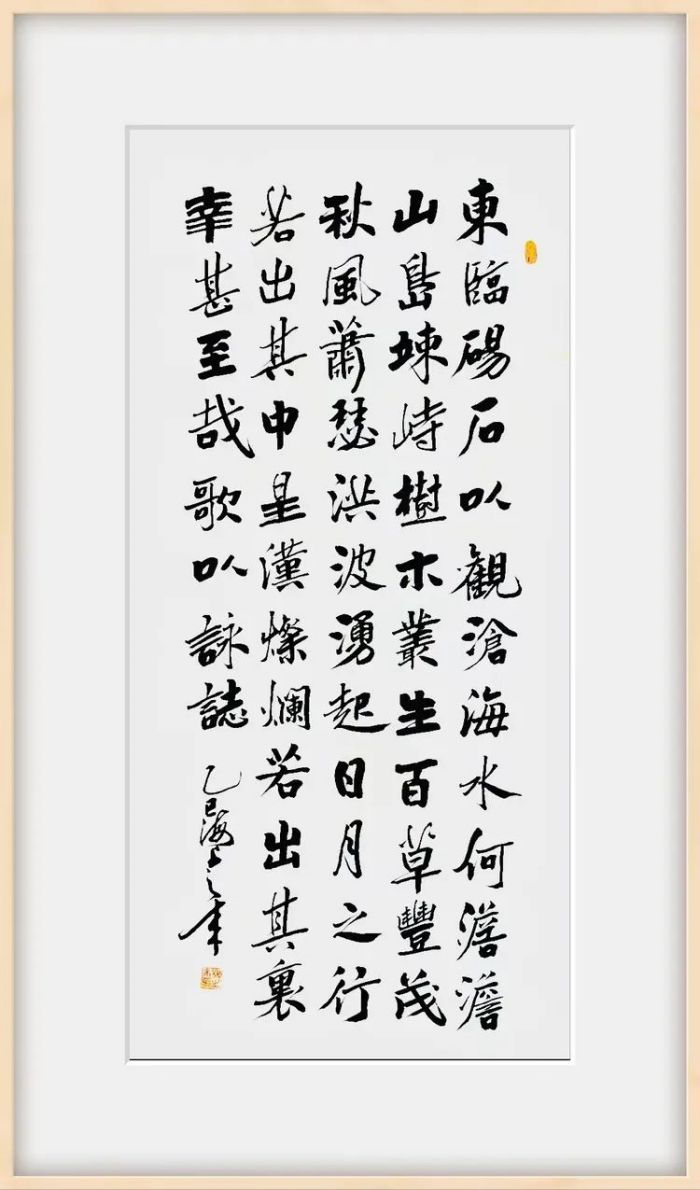 東臨碣石以觀滄海水何澹澹
山島竦峙樹木叢生百草豐茂
秋風蕭瑟洪波湧起日月之行
若出其中星漢燦爛若出其裏
幸甚至哉歌以詠誌 乙巳